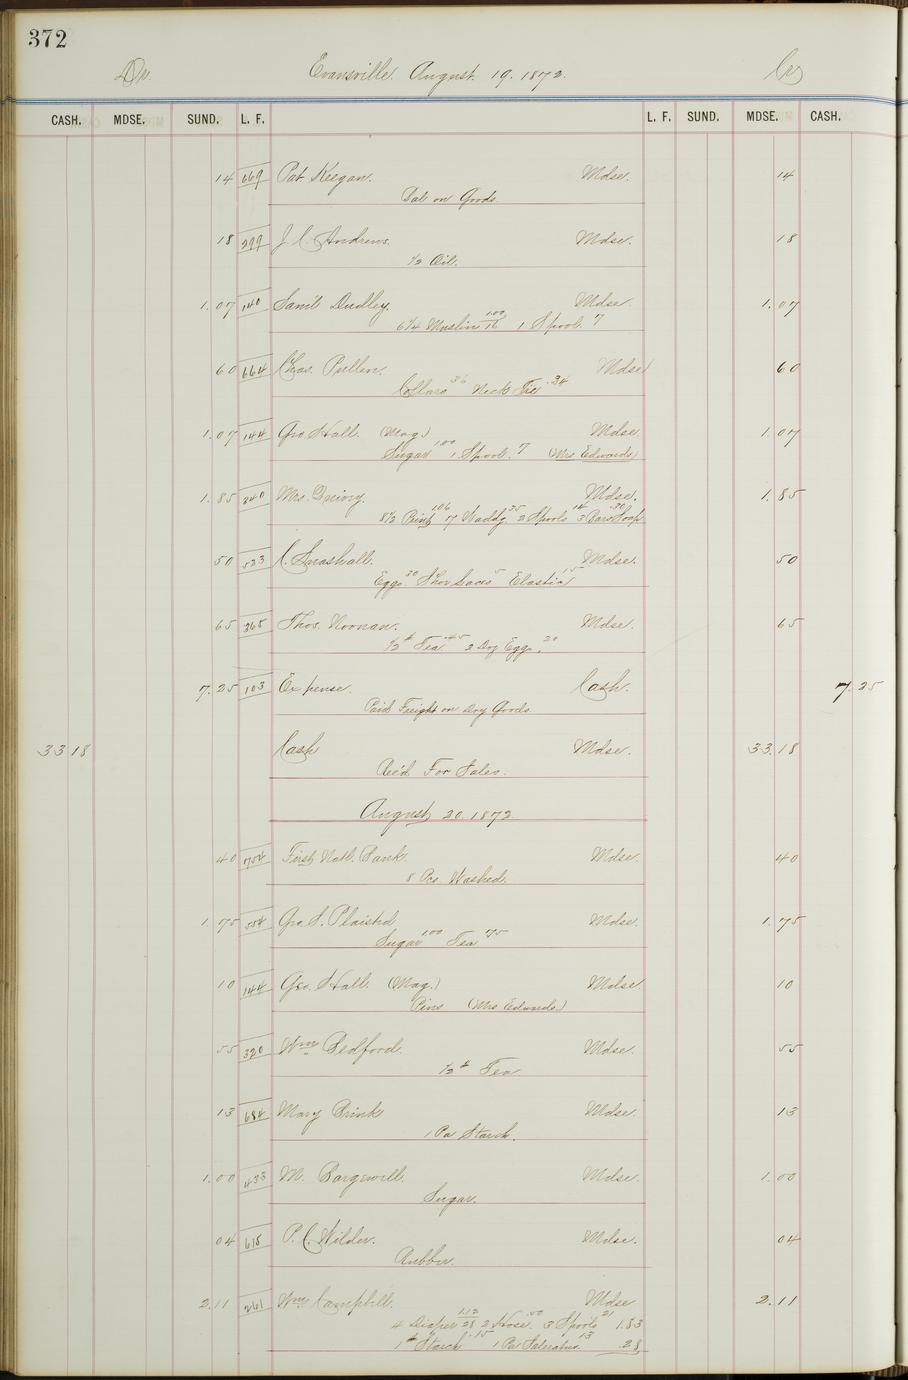 372
Dr. Evansville. August. 19. 1872. Cr
CASH. MDSE. SUND. L. F. L. F. SUND. MDSE. CASH.
14 669 Pat. Keegan. Mdse. 14
Bal on Goods
18 299 J. C. Andrews. Mdse. 18
1/2 Oil.
1.07 140 Saml Dudley. Mdse. 1.07
6 1/4 Muslin 16 1.00 1 Spool. 7
60 664 Chas. Pullen. Mdse 60
Collars 36 Neck Tie .34
1.07 144 Geo. Hall. (Mag.) Mdse. 1.07
Sugar 1.00 1 Spool. 7 (Mrs Edwards)
1.85 340 Mrs. Mdse. 1.85
8 1/2 Print 1.06 7 Waddg 35 2 Spools 14 3 Bars Soap .30
50 523 C. Mdse. 50
Eggs 30 Shoe Laces 5 Elastic 15
65 365 Thos. Noonan. Mdse. 65
1/2 # Tea .45 2 Doz Eggs. 20
7.25 103 Expense. Cash. 7.25
Paid Freight on Dry Goods
33 18 Cash Mdse. 33.18
Rec'd For Sales.
August 20. 1872.
40 754 First Natl. Bank. Mdse. 40
8 Pcs. Washed.
1.75 554 Geo. S. Plaistd Mdse. 1.75
Sugar 1.00 Tea 75
10 144 Geo. Hall. (Mag.) Mdse 10
Pins (Mrs Edwards)
55 320 Wm Bedford. Mdse. 55
1/2 # Tea
13 684 Mary Brink Mdse. 13
1 Pa Starch.
1.00 433 M. Mdse. 1.00
Sugar.
04 618 P. C. Wilder. Mdse. 04
Rubber.
2.11 261 Wm Campbell. Mdse 2.11
4 Diaper 28 1.12 2 Hose. .50 3 Spools 21 1.83
1 # Starch .15 1 Pa Saleratus. 13 28